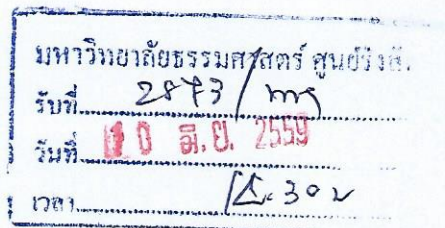 มหาวิทยาลัยธรรมศาสตร์ ศูนย์รังสิ
รับที่ 2873/
วันที่ 10 มิ.ย. 2559
เวลา .30 น